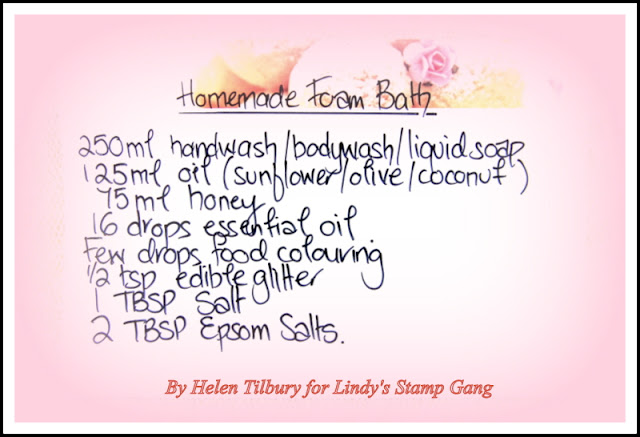 Homemade Foam Bath
250ml handwash/bodywash/liquid soap
125ml oil (sunflower/olive/coconut)
75ml honey
16 drops essential oil
Few drops food colouring
1/2 tsp edible glitter
1 TBSP Salt
2 TBSP Epsom Salts.
By Helen Tilbury for Lindy's Stamp Gang